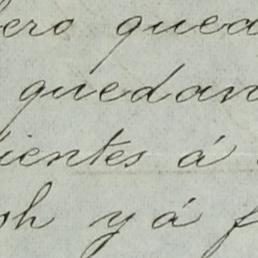 ero qued
quedan
ientes á
sh y á f